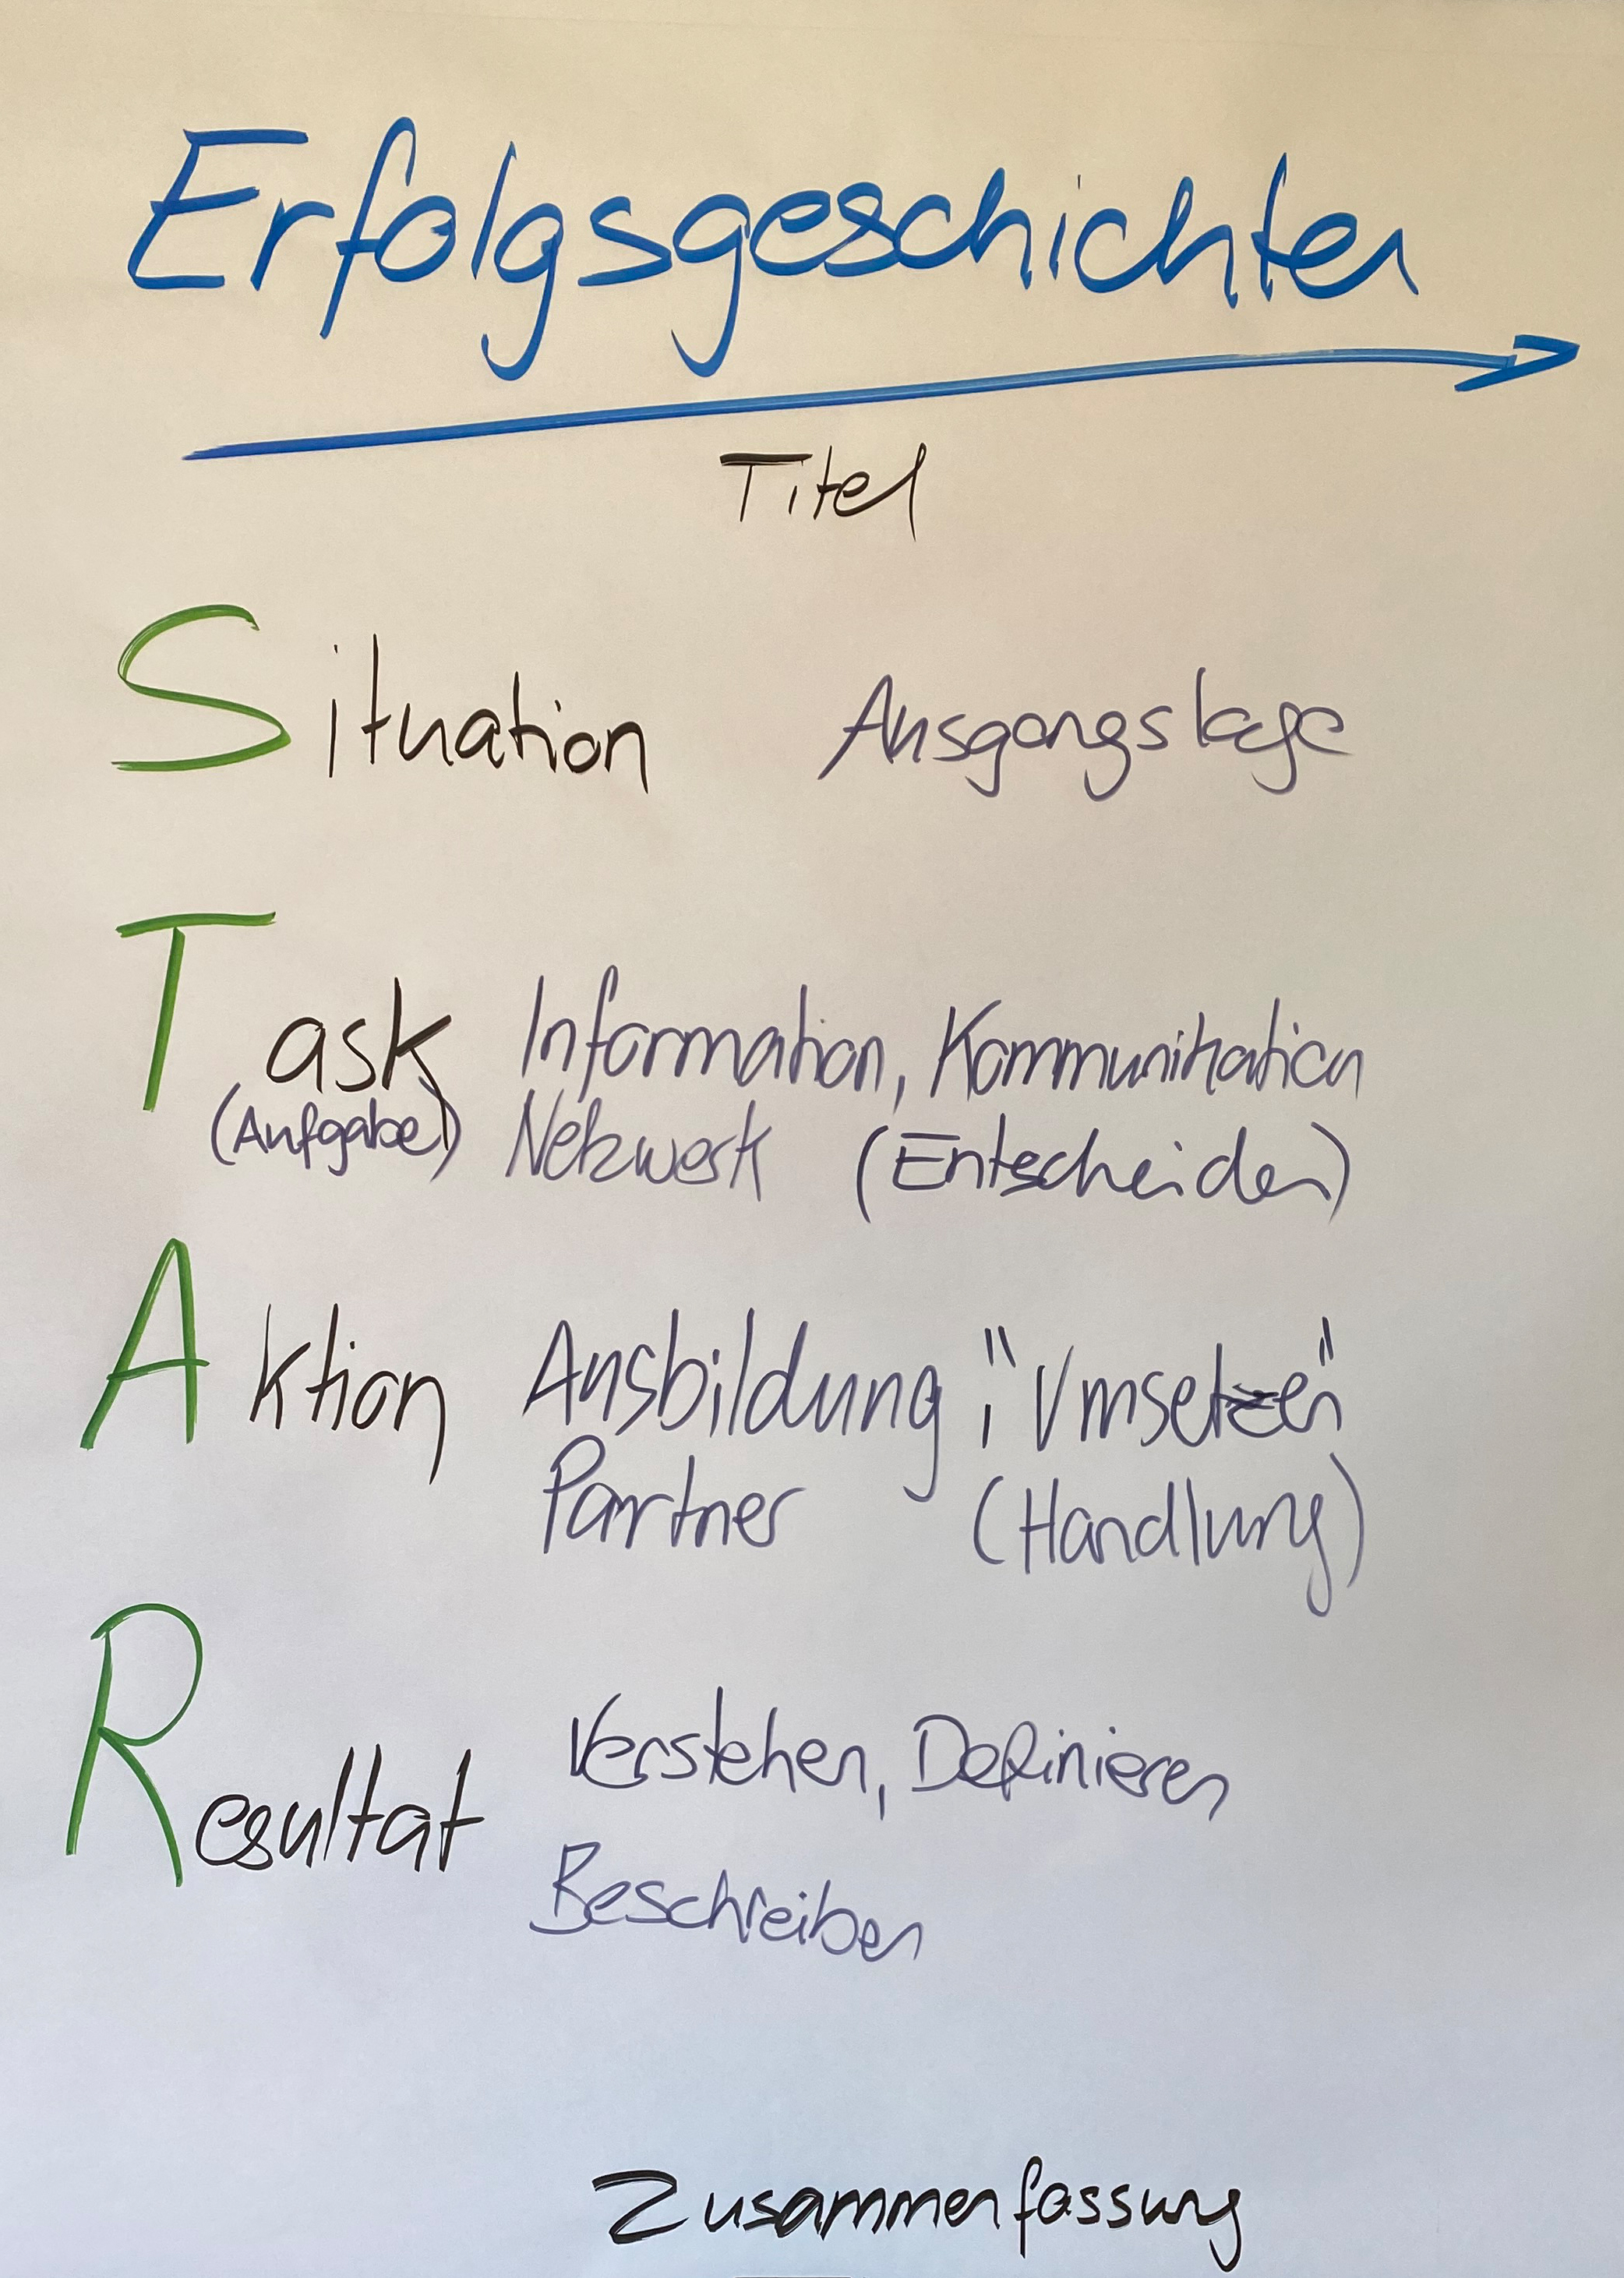 Erfolgsgeschichten
Titel
Situation Ausgangslage
Task Information, Kommunikation
(Aufgabe) Netzwerk (Entscheider)
Aktion Ausbildung, "Umsetzen"
Partner (Handlung)
Resultat Verstehen, Definieren
Beschreiben
Zusammenfassung